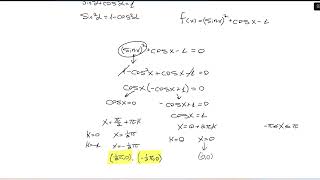 sin²x+cos²x=1
sin²x=1-cos²x
f(x)=(sinx)²+cosx-1
(sinx)²+cosx-1=0
1-cos²x+cosx-1=0
cosx(-cosx+1)=0
cosx=0 -cosx+1=0
cosx=1
x=π/2+πk x=0+2πk -π≤x≤π
k=0 x=½π k=0 x=0
k=-1 x=-½π
(½π,0), (-½π,0) (0,0)